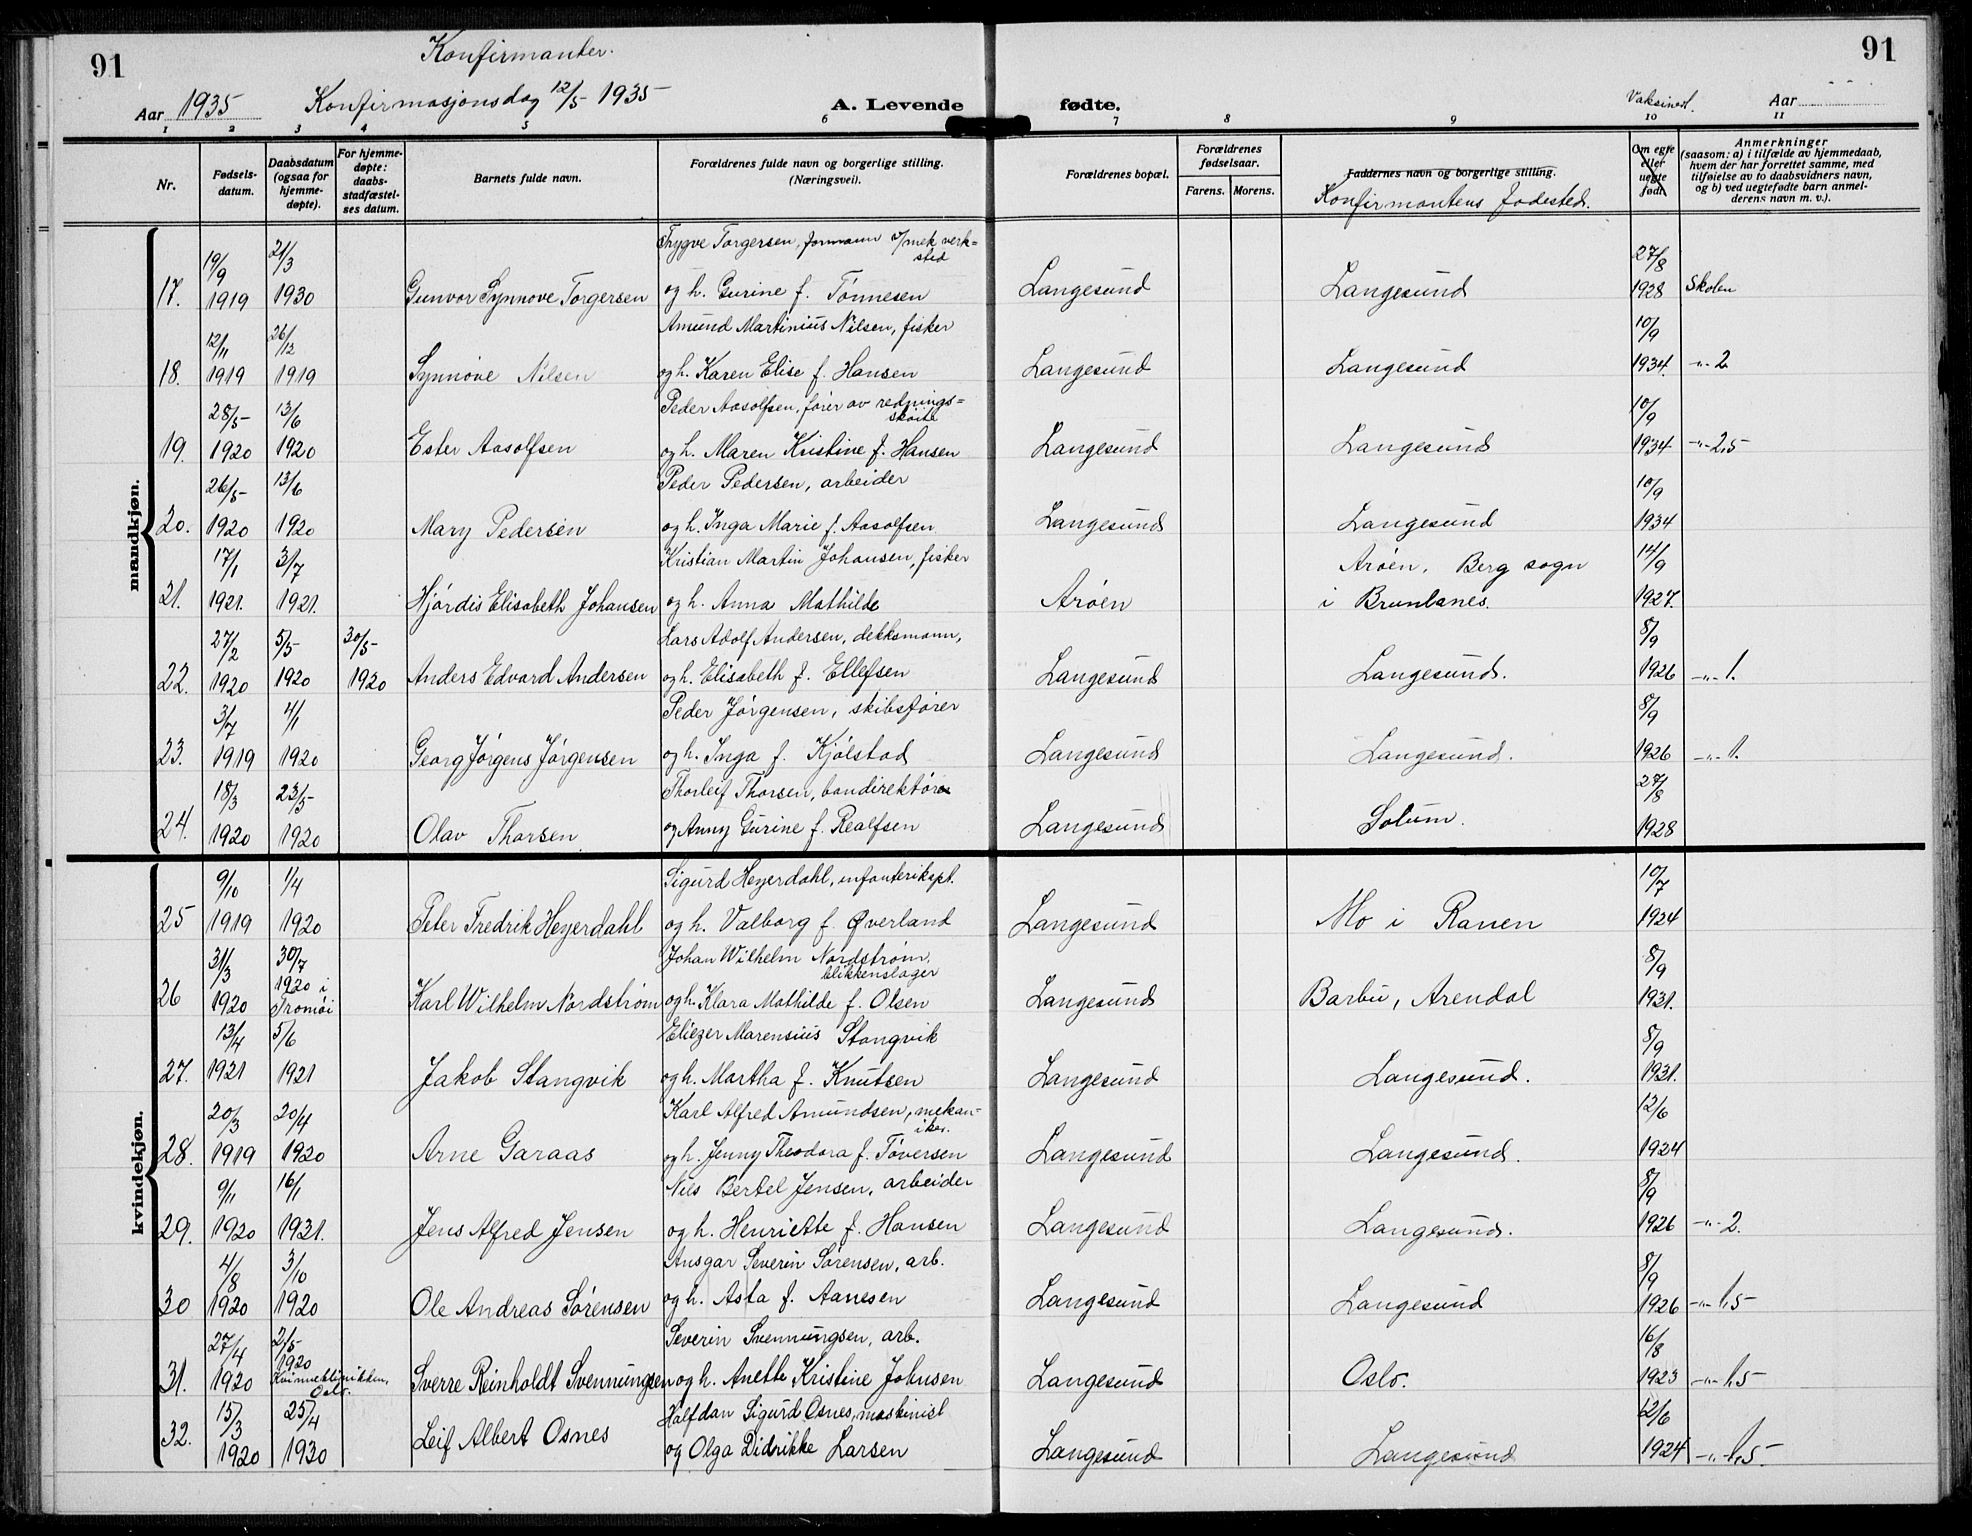 91
Konfirmanter.
91
Aar 1935
Konfirmasjonsdag 12/5 1935
A. Levende fødte.
Vaksined.
Aar
1 2 3 4 5 6 7 8 9 10 11
Nr.
Fødsels-
datum.
Daabsdatum
(ogsaa for
hjemme-
døpte).
For hjemme-
døpte:
daabs-
stadfæstel-
ses datum.
Barnets fulde navn.
Forældrenes fulde navn og borgerlige stilling.
(Næringsvei).
Forældrenes bopæl.
Forældrenes
fødselsaar.
Farens. Morens.
Faddernes navn og borgerlige stilling.
Konfirmantens fødested.
Om egte
eller
uegte
født.
Anmerkninger
(saasom: a) i tilfælde av hjemmedaab,
hvem der har forrettet samme, med
tilføielse av to daabsvidners navn,
og b) ved uegtefødte barn anmel-
derens navn m. v.).
mandkjøn.
19/9 21/3 Trygve Torgersen, formann v/mek verk=
sted 27/8
17. 1919 1930 Gunvor Synnøve Torgersen og h. Gurine f. Tønnesen Langesund Langesund 1928 Skolen
12/11 26/12 Amund Martinius Nilsen, fisker 10/9
18. 1919 1919 Synnøve Nilsen og h. Karen Elise f. Hansen Langesund Langesund 1934. -"- 2
28/5 13/6 Peder Aasolfsen, fører av rednings=
skøite 10/9
19. 1920 1920 Ester Aasolfsen og h. Maren Kristine f. Hansen Langesund Langesund 1934 -"- 2,5
26/5 13/6 Peder Pedersen, arbeider 10/9
20. 1920 1920 Mary Pedersen og h. Inga Marie f. Aasolfsen Langesund Langesund 1934
17/1 3/7 Kristian Martin Johansen, fisker Arøen, Berg sogn 14/9
21. 1921. 1921. Hjørdis Elisabeth Johansen og h. Anna Mathilde Arøen i Brunlanes. 1927.
27/2 5/5 30/5 Lars Adolf Andersen, dekksmann, 8/9
22. 1920 1920 1920 Anders Edvard Andersen og h. Elisabeth f. Ellefsen Langesund Langesund. 1926 -"- 1.
3/7 4/1 Peder Jørgensen, skibsfører 8/9
23. 1919 1920 Georg Jørgens Jørgensen og h. Inga f. Kjølstad Langesund Langesund. 1926 -"- 1.
18/3 23/5 Thorleif Thorsen, 27/8
24. 1920 1920 Olav Thorsen og Anny Gurine f. Realfsen Langesund Solum. 1928
kvindekjøn.
9/10 1/4 Sigurd Heyerdahl, infanterikapt. 10/7
25 1919 1920 Peter Fredrik Heyerdahl og h. Valborg f. Øverland Langesund Mo i Ranen 1924
31/3 30/7 Johan Wilhelm Nordstrøm,
blikkenslager 8/9
26 1920 1920 i
Tromøi Karl Wilhelm Nordstrøm og h. Klara Mathilde f. Olsen Langesund Barbu, Arendal 1931.
13/4 5/6 Eliezer Marensius Stangvik 8/9
27. 1921 1921 Jakob Stangvik og h. Martha f. Knutsen Langesund Langesund. 1931.
20/3 20/4 Karl Alfred Amundsen, mekan-
iker. 12/6
28. 1919 1920 Arne Garaas og h. Jenny Theodora f. Tøversen Langesund Langesund. 1924
9/11 16/1 Nils Bertel Jensen, arbeider 8/9
29. 1920 1921. Jens Alfred Jensen og h. Henriette f. Hansen Langesund Langesund. 1926 -"- 2.
4/8 3/10 Ansgar Severin Sørensen, arb. 8/9
30 1920 1920 Ole Andreas Sørensen og h. Asta f. Aanesen Langesund Langesund 1926 -"- 1,5
27/4 2/5 Severin Svennungsen, arb. 16/8
31. 1920 1920
Kvinneklinikken,
Oslo. Sverre Reinholdt Svennungsen og h. Anette Kristine Johnsen Langesund Oslo. 1923 -"- 1,5
15/3 25/4 Halfdan Sigurd Osnes, maskinist 12/6
32. 1920 1930 Leif Albert Osnes og Olga Didrikke Larsen Langesund Langesund 1924 -"- 1,5